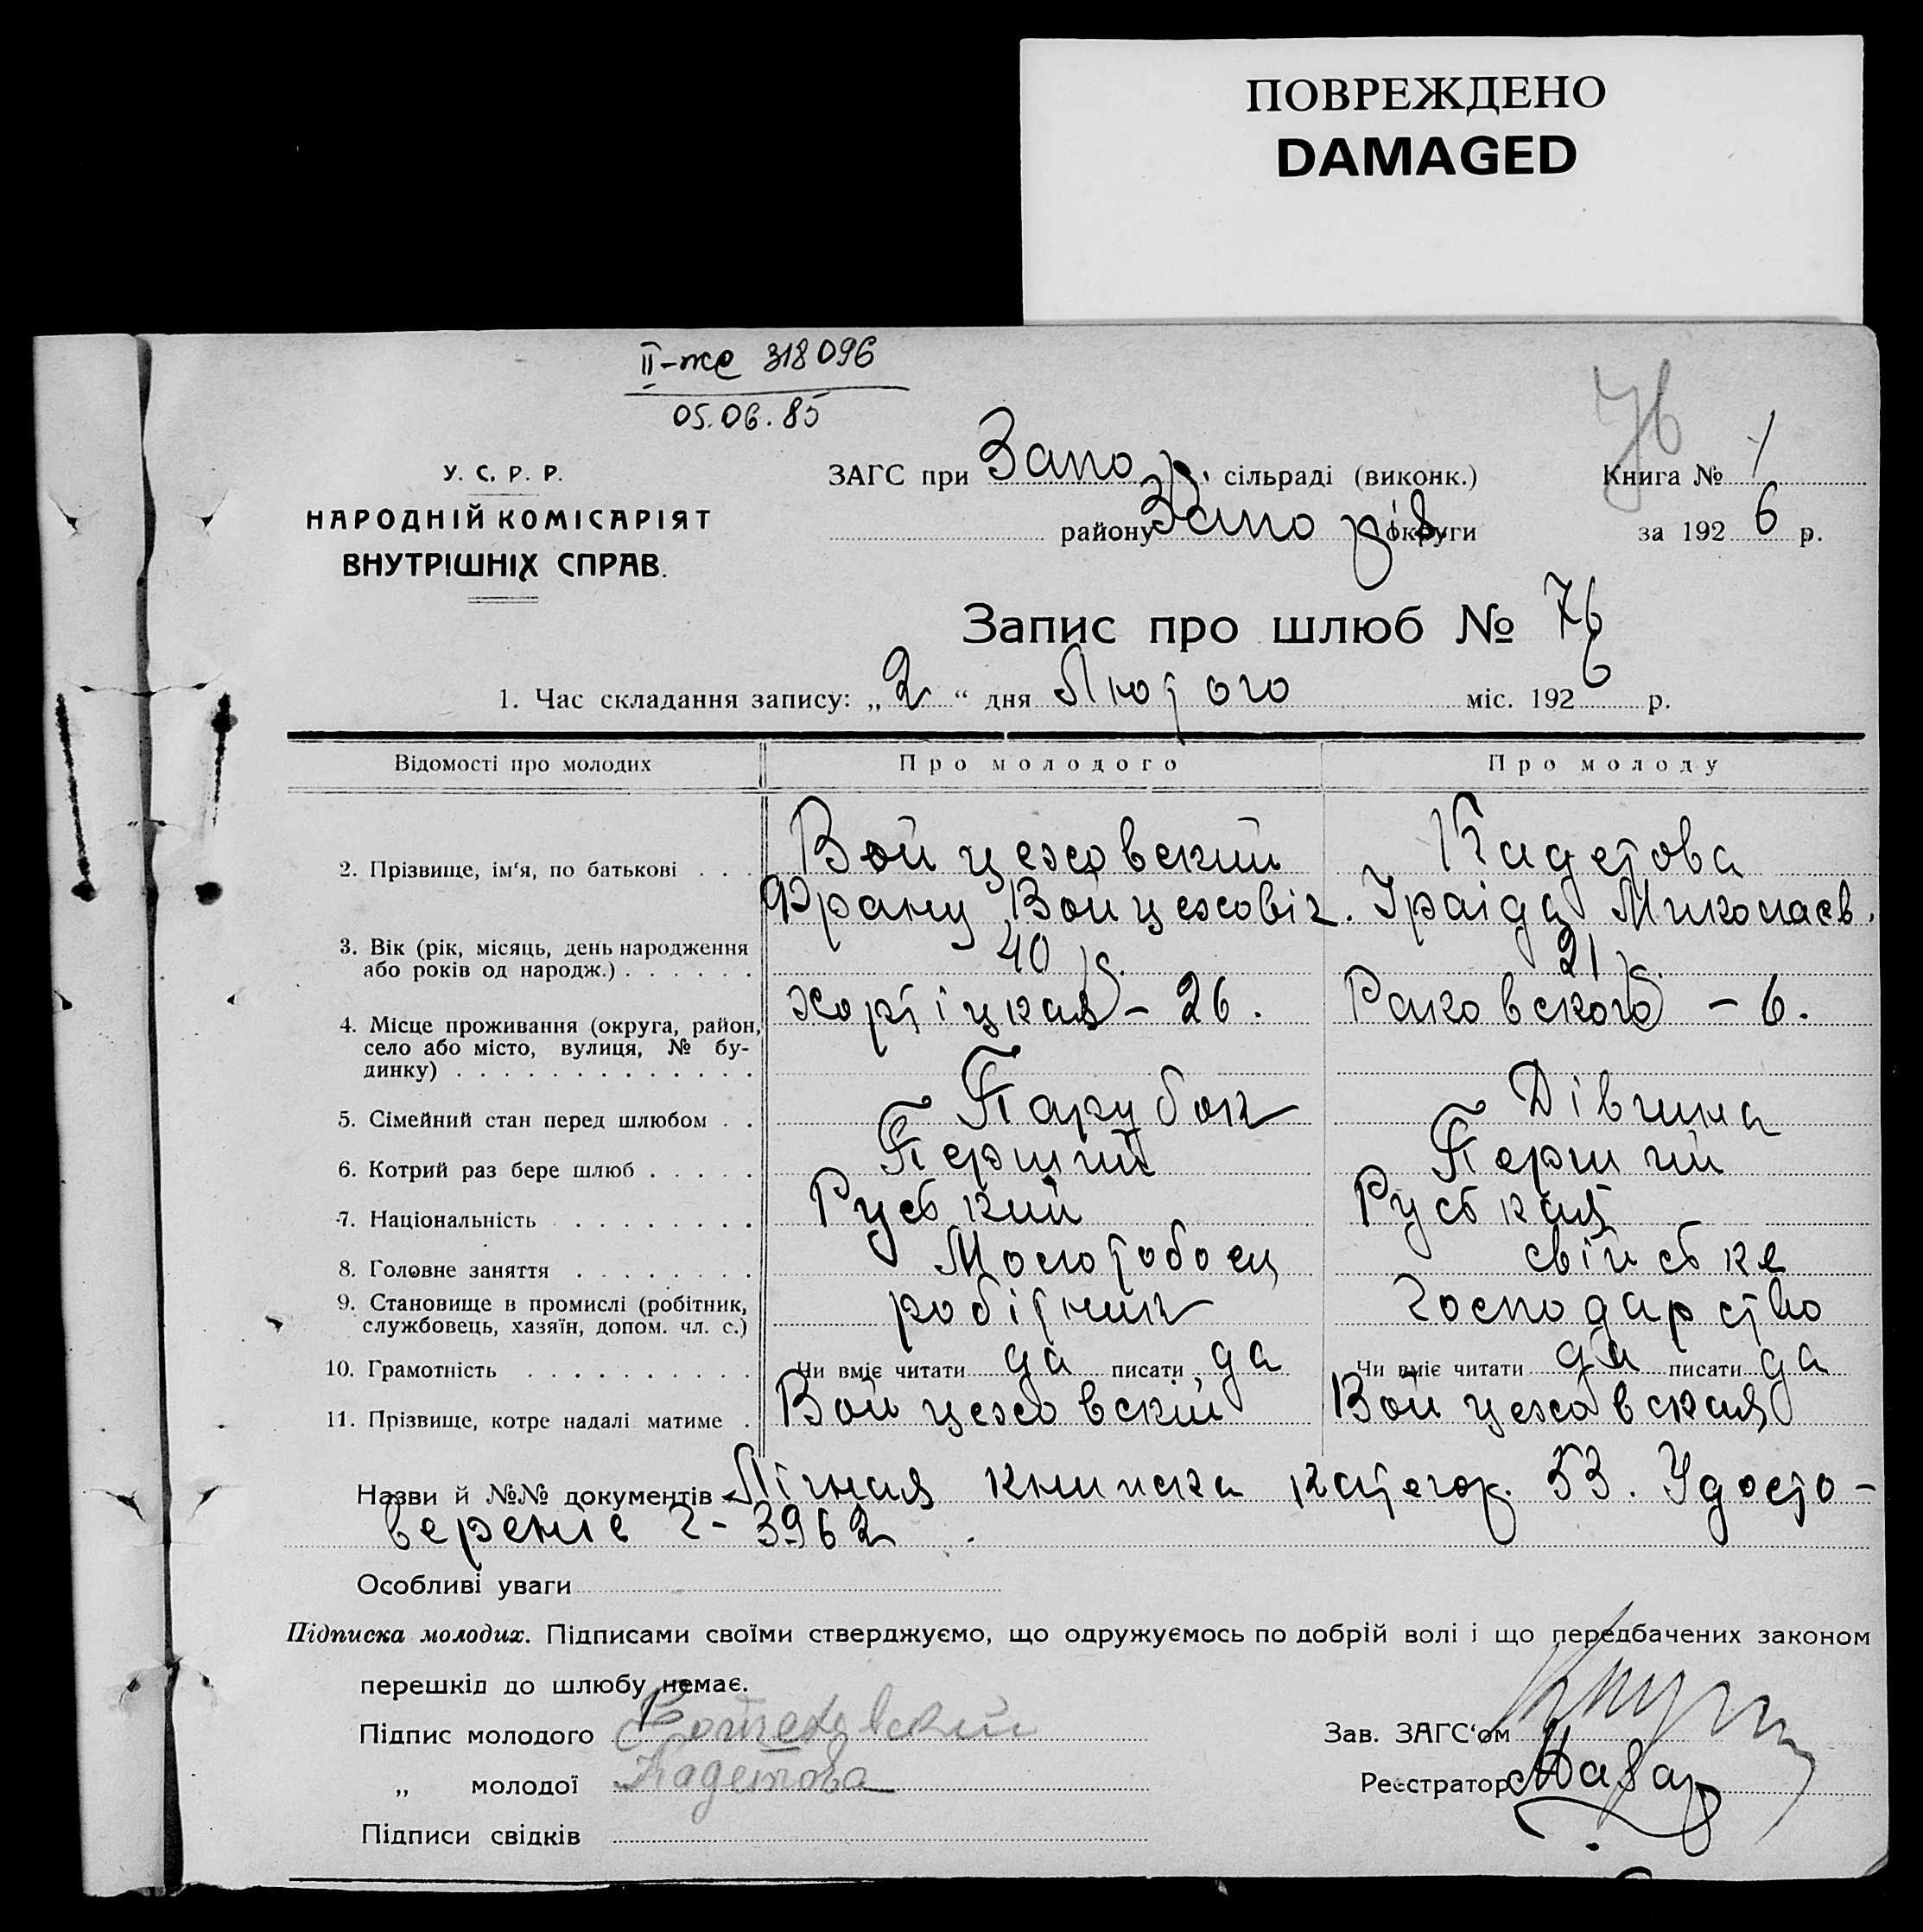 ПОВРЕЖДЕНО
DAMAGED
II-же 318096
05.06.85
76
У. С. Р. Р.
НАРОДНІЙ КОМІСАРІЯТ
ВНУТРІШНІХ СПРАВ.
ЗАГС при Запор. сільраді (виконк.) Книга № 1
району Запоріз. округи за 1926 р.
Запис про шлюб № 76
1. Час складання запису: „2“ дня Лютого міс. 1926 р.
Відомості про молодих Про молодого Про молоду
2. Прізвище, ім‘я, по батькові . . . Войцеховский Кадетова
Франц Войцеховіч. Іраіда Миколаєв.
3. Вік (рік, місяць, день народження 40 р. 21 р.
або років од народж.) . . . . . .
4. Місце проживання (округа, район, Хортіцкая - 26. Раковского - 6.
село або місто, вулиця, № бу-
динку) . . . . . . . . . . . . .
5. Сімейний стан перед шлюбом . . Парубок Дівчина
6. Котрий раз бере шлюб . . . . . Перший Перший
7. Національність . . . . . . . . Руський Руськая
8. Головне заняття . . . . . . . . Молотобоец свійське
9. Становище в промислі (робітник, робітник господарство
службовець, хазяїн, допом. чл. с.)
10. Грамотність . . . . . . . . . . Чи вміє читати да писати да Чи вміє читати да писати да
11. Прізвище, котре надалі матиме . Войцеховскій Войцеховская
Назви й №№ документів Лічная книжка категор. 53. Удосто-
вереніе 2-3962
Особливі уваги
Підписка молодих. Підписами своїми стверджуємо, що одружуємось по добрій волі і що передбачених законом
перешкід до шлюбу немає.
Підпис молодого Войцеховский Зав. ЗАГС‘ом
„ молодої Кадетова Реєстратор
Підписи свідків